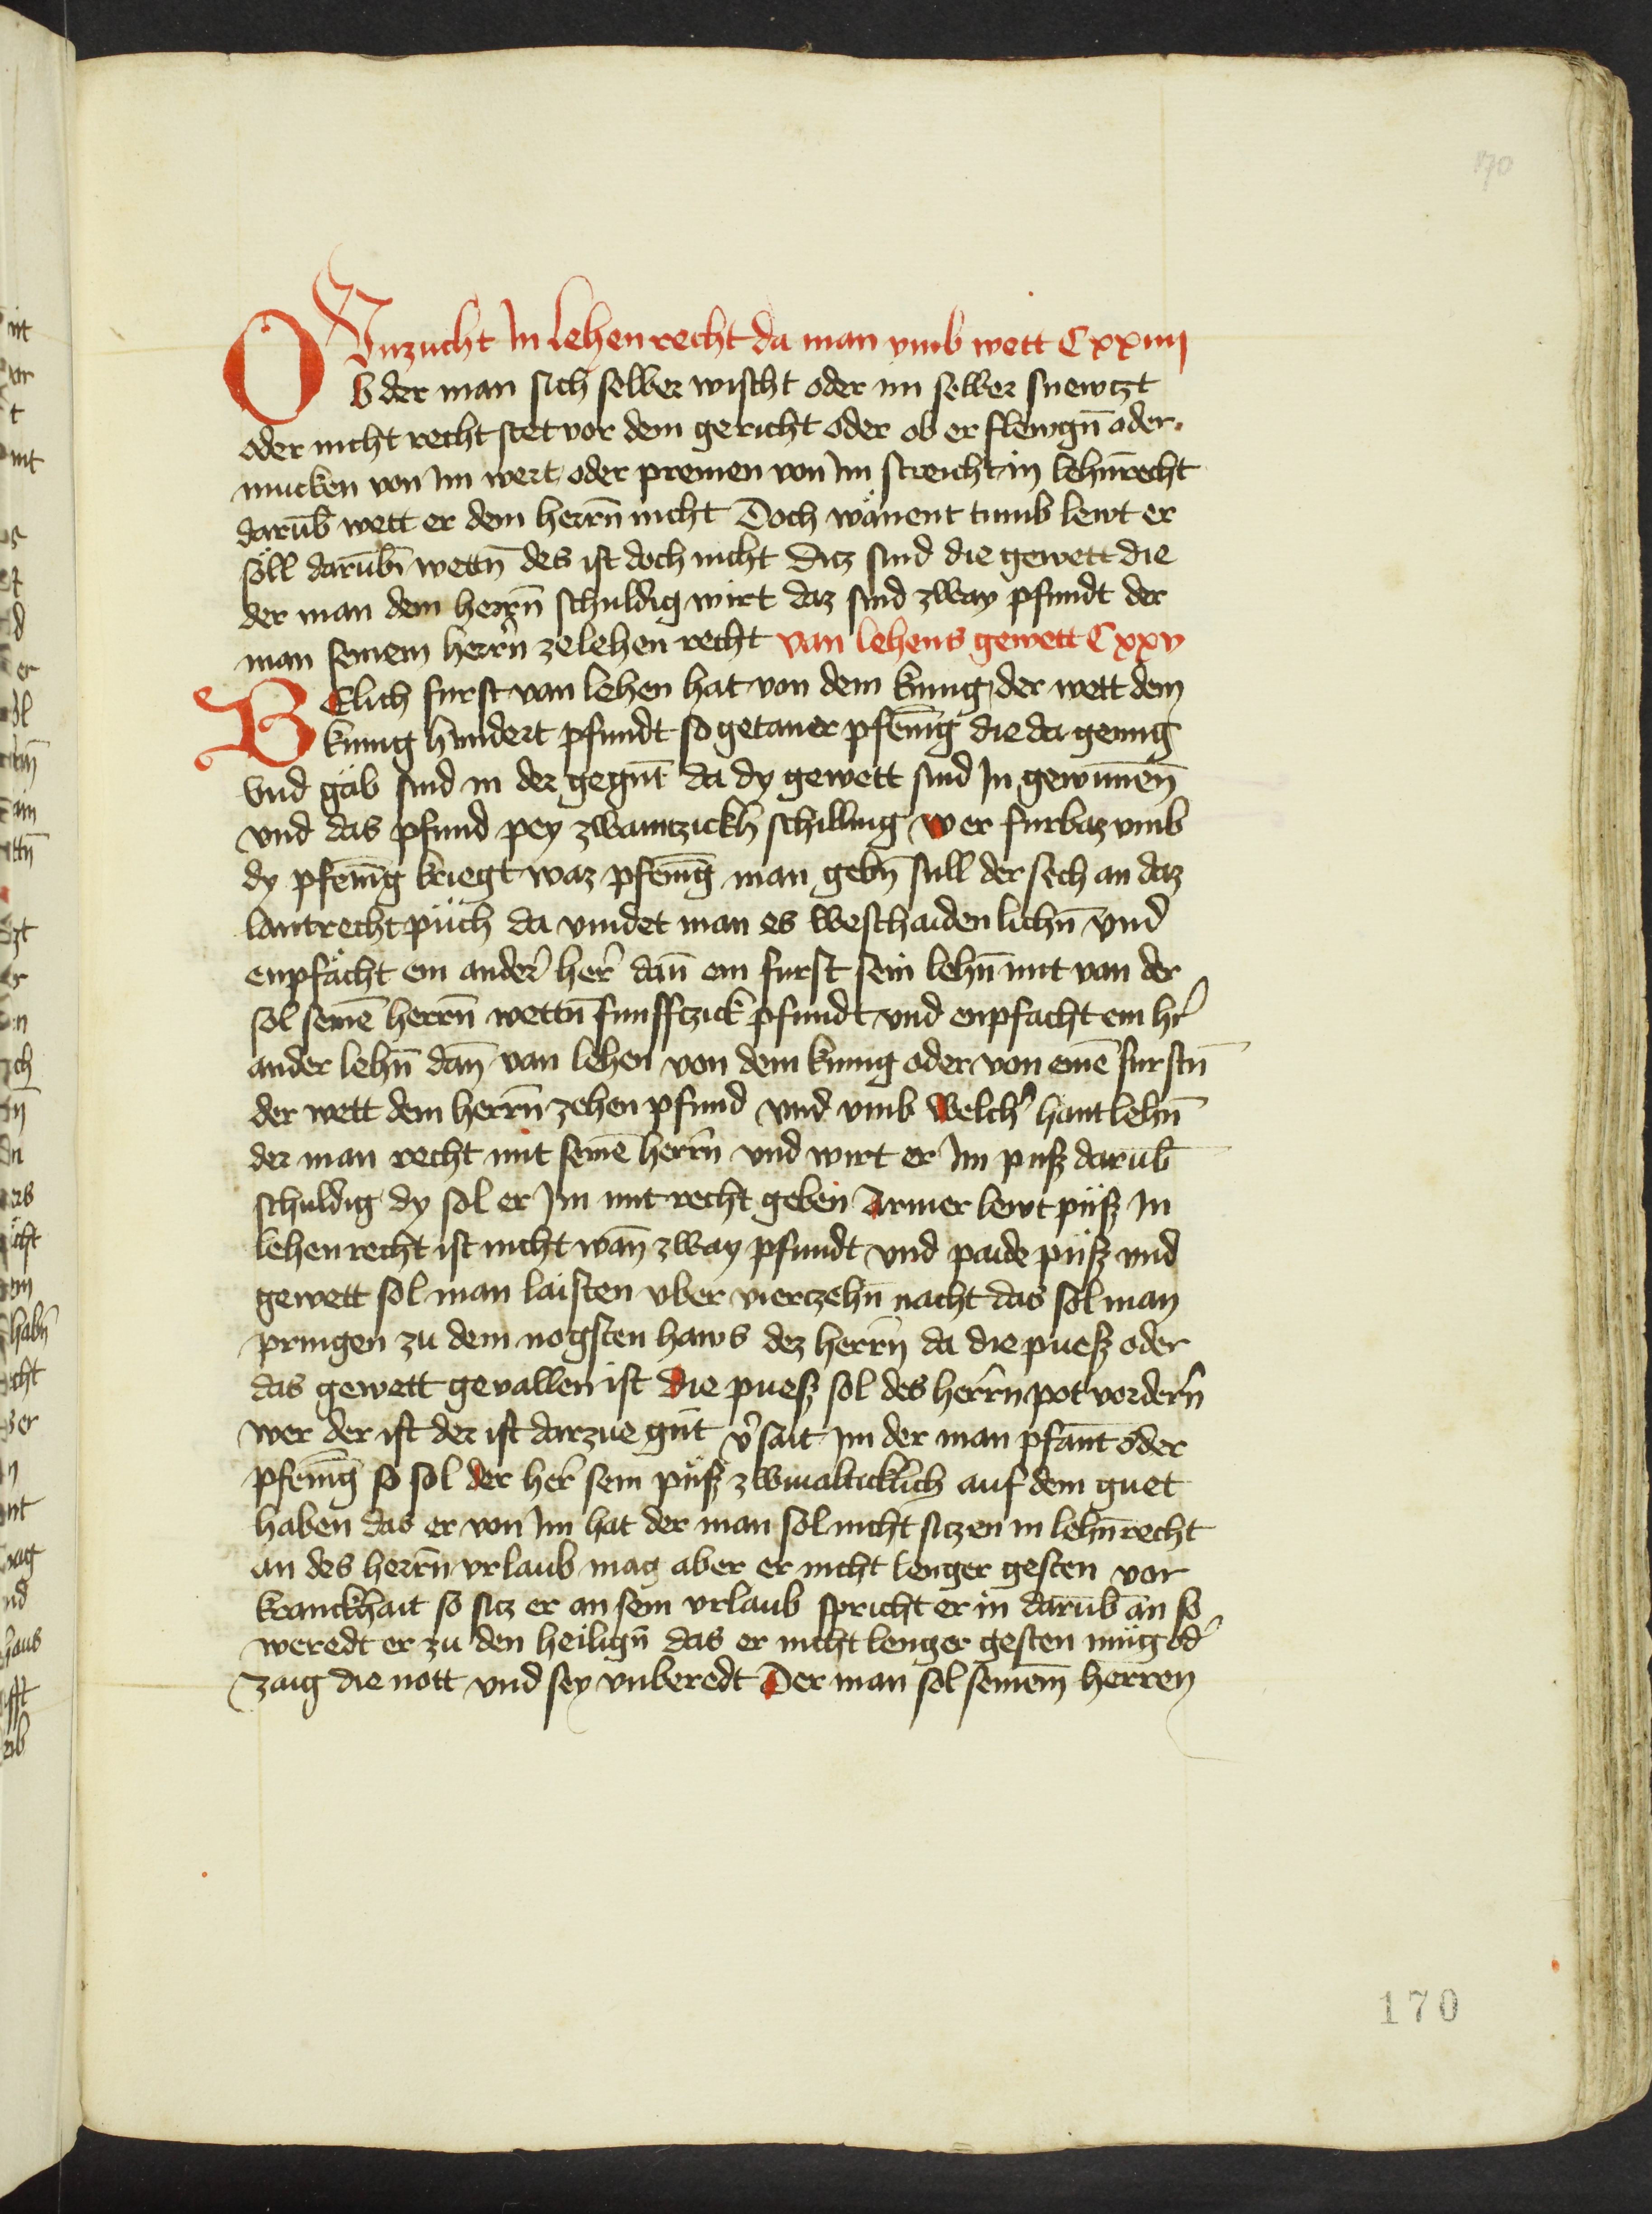 170
Vnzucht In lehenrecht da man vmb wett Cxxiiij
Ob der man sich selber wischt oder im selber snewczt
oder nicht recht stet vor dem gericht oder ob er flewgn̄ oder
mucken von Im wert oder premen von Im streicht in lehn̄recht
darūb wett er dem herrn̄ nicht Doch wänent tumb lewt er
söll darūb wettn̄ des ist doch nicht Dicz sind die gewett die
der man dem herrn̄ schuldig wirt daz sind zway pfundt der
man seinem herrn̄ ze lehen recht van lehens gewett Cxxv
BElich furst van lehen hat von dem kunig der wett dem
kunig hundert pfundt so getaner pfenīg die da genng
vnd gäb sind in der gegn̄t da dy gewett sind In gewunnen̄
vnd das pfund pey zwaintzickh schilling wer furbaz vmb
dy pfenīg kriegt waz pfenīg man gebn̄ sull der sech an daz
lantrecht püch da vindet man es weschaidenlichn̄ vnd
enpfächt ein ander̄ her̄ dan̄ ein furst sein lehn̄ mit van der
sol seinē herrn̄ wettn̄ funfftzick pfundt vnd enpfacht ein hr̄
ander lehn̄ dan̄ van lehen von dem kunig oder von einē furstn̄
der wett dem herrn̄ zehen pfund vnd vmb welch̄ hantlehn̄
der man recht mit seinē herrn̄ vnd wirt er Im puß darūb
schuldig dy sol er Im mit recht geben Armer lewt püß In
lehenrecht ist nicht wan̄ zway pfundt vnd paide püß vnd
gewett sol man laisten vber vierczehn̄ nacht das sol man
pringen zu dem nogsten haws dez herrn̄ da die pueß oder
das gewett gevallen ist Die pueß sol des herrn̄ pot vordern̄
wer der ist der ist darzue gūt v̄sait Im der man pfant oder
pfenīg so sol der her̄ sein püß zwiualticklich auf dem guet
haben das er von Im hat der man sol nicht siczen in lehn̄recht
an des herrn̄ vrlaub mag aber er nicht lenger gesten vor
kranckhait so sicz er an sein vrlaub spricht er in darūb an so
weredt er zu den heilign̄ das er nicht lenger gesten müg od̄
zaig die nott vnd sey vnberedt Der man sol seinem̄ herren
170